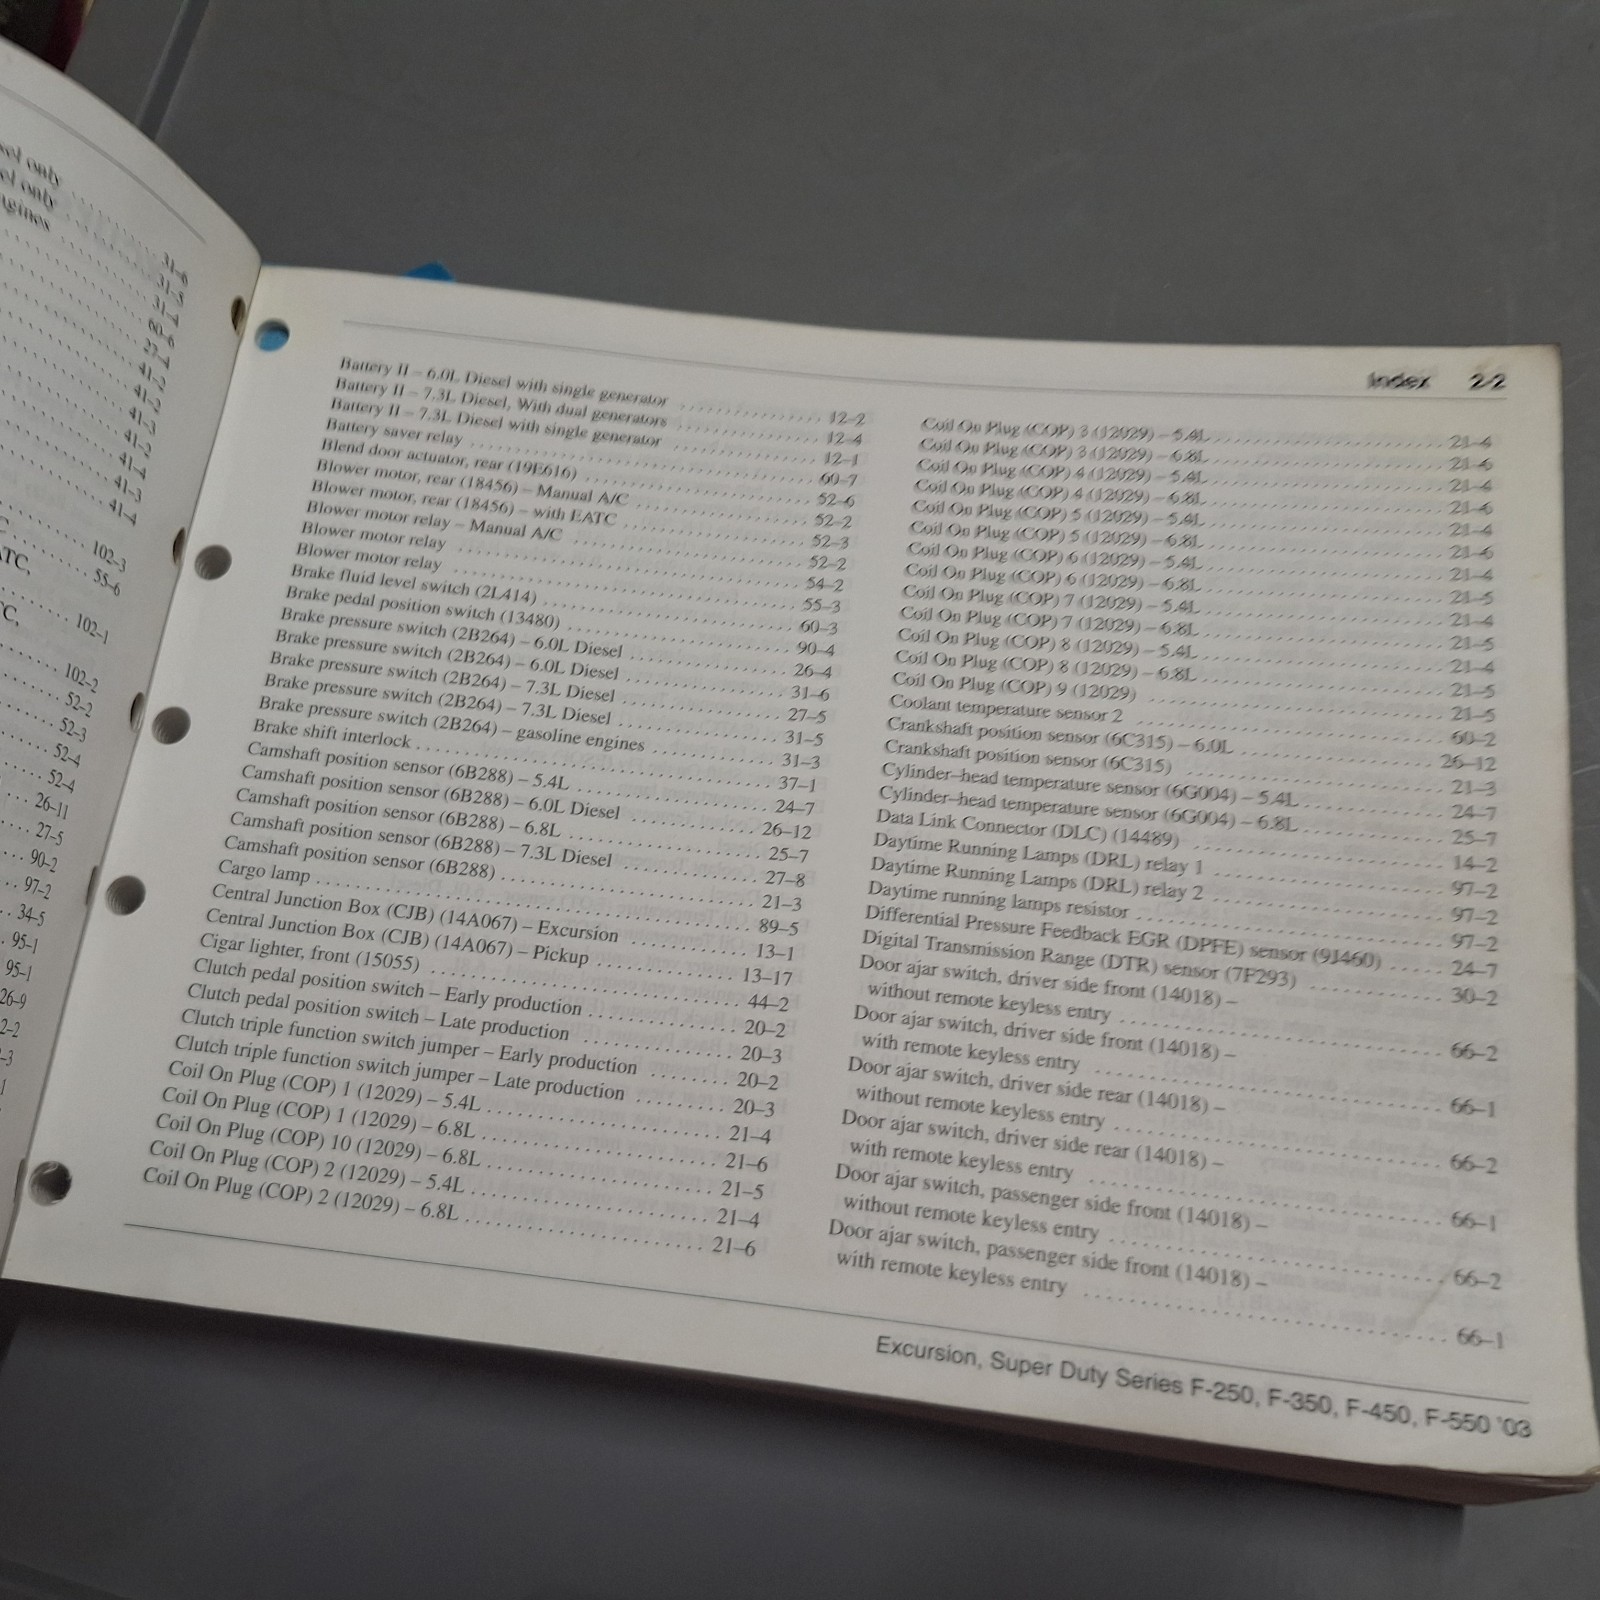 sel only
el only
ngines
31–6
31–5
31–4
27–4
41–2
41–2
41–3
41–2
41–4
41–3
41–4
102–3
55–6
ATC,
102–1
TC,
102–2
52–2
52–3
52–4
52–4
26–11
27–5
90–2
97–2
34–5
95–1
95–1
26–9
Index 2-2
Battery II – 6.0L Diesel with single generator ........ 12–2
Battery II – 7.3L Diesel, With dual generators ........ 12–4
Battery II – 7.3L Diesel with single generator ........ 12–1
Battery saver relay ........ 60–7
Blend door actuator, rear (19E616) ........ 52–6
Blower motor, rear (18456) – Manual A/C ........ 52–2
Blower motor, rear (18456) – with EATC ........ 52–3
Blower motor relay – Manual A/C ........ 52–2
Blower motor relay ........ 54–2
Blower motor relay ........ 55–3
Brake fluid level switch (2L414) ........ 60–3
Brake pedal position switch (13480) ........ 90–4
Brake pressure switch (2B264) – 6.0L Diesel ........ 26–4
Brake pressure switch (2B264) – 6.0L Diesel ........ 31–6
Brake pressure switch (2B264) – 7.3L Diesel ........ 27–5
Brake pressure switch (2B264) – 7.3L Diesel ........ 31–5
Brake pressure switch (2B264) – gasoline engines ........ 31–3
Brake shift interlock ........ 37–1
Camshaft position sensor (6B288) – 5.4L ........ 24–7
Camshaft position sensor (6B288) – 6.0L Diesel ........ 26–12
Camshaft position sensor (6B288) – 6.8L ........ 25–7
Camshaft position sensor (6B288) – 7.3L Diesel ........ 27–8
Camshaft position sensor (6B288) ........ 21–3
Cargo lamp ........ 89–5
Central Junction Box (CJB) (14A067) – Excursion ........ 13–1
Central Junction Box (CJB) (14A067) – Pickup ........ 13–17
Cigar lighter, front (15055) ........ 44–2
Clutch pedal position switch – Early production ........ 20–2
Clutch pedal position switch – Late production ........ 20–3
Clutch triple function switch jumper – Early production ........ 20–2
Clutch triple function switch jumper – Late production ........ 20–3
Coil On Plug (COP) 1 (12029) – 5.4L ........ 21–4
Coil On Plug (COP) 1 (12029) – 6.8L ........ 21–6
Coil On Plug (COP) 10 (12029) – 6.8L ........ 21–5
Coil On Plug (COP) 2 (12029) – 5.4L ........ 21–4
Coil On Plug (COP) 2 (12029) – 6.8L ........ 21–6
Coil On Plug (COP) 3 (12029) – 5.4L ........ 21–4
Coil On Plug (COP) 3 (12029) – 6.8L ........ 21–6
Coil On Plug (COP) 4 (12029) – 5.4L ........ 21–4
Coil On Plug (COP) 4 (12029) – 6.8L ........ 21–6
Coil On Plug (COP) 5 (12029) – 5.4L ........ 21–4
Coil On Plug (COP) 5 (12029) – 6.8L ........ 21–6
Coil On Plug (COP) 6 (12029) – 5.4L ........ 21–4
Coil On Plug (COP) 6 (12029) – 6.8L ........ 21–5
Coil On Plug (COP) 7 (12029) – 5.4L ........ 21–4
Coil On Plug (COP) 7 (12029) – 6.8L ........ 21–5
Coil On Plug (COP) 8 (12029) – 5.4L ........ 21–4
Coil On Plug (COP) 8 (12029) – 6.8L ........ 21–5
Coil On Plug (COP) 9 (12029) ........ 21–5
Coolant temperature sensor 2 ........ 60–2
Crankshaft position sensor (6C315) – 6.0L ........ 26–12
Crankshaft position sensor (6C315) ........ 21–3
Cylinder–head temperature sensor (6G004) – 5.4L ........ 24–7
Cylinder–head temperature sensor (6G004) – 6.8L ........ 25–7
Data Link Connector (DLC) (14489) ........ 14–2
Daytime Running Lamps (DRL) relay 1 ........ 97–2
Daytime Running Lamps (DRL) relay 2 ........ 97–2
Daytime running lamps resistor ........ 97–2
Differential Pressure Feedback EGR (DPFE) sensor (9J460) ...... 24–7
Digital Transmission Range (DTR) sensor (7F293) ........ 30–2
Door ajar switch, driver side front (14018) –
without remote keyless entry ........ 66–2
Door ajar switch, driver side front (14018) –
with remote keyless entry ........ 66–1
Door ajar switch, driver side rear (14018) –
without remote keyless entry ........ 66–2
Door ajar switch, driver side rear (14018) –
with remote keyless entry ........ 66–1
Door ajar switch, passenger side front (14018) –
without remote keyless entry ........ 66–2
Door ajar switch, passenger side front (14018) –
with remote keyless entry ........ 66–1
Excursion, Super Duty Series F-250, F-350, F-450, F-550 '03